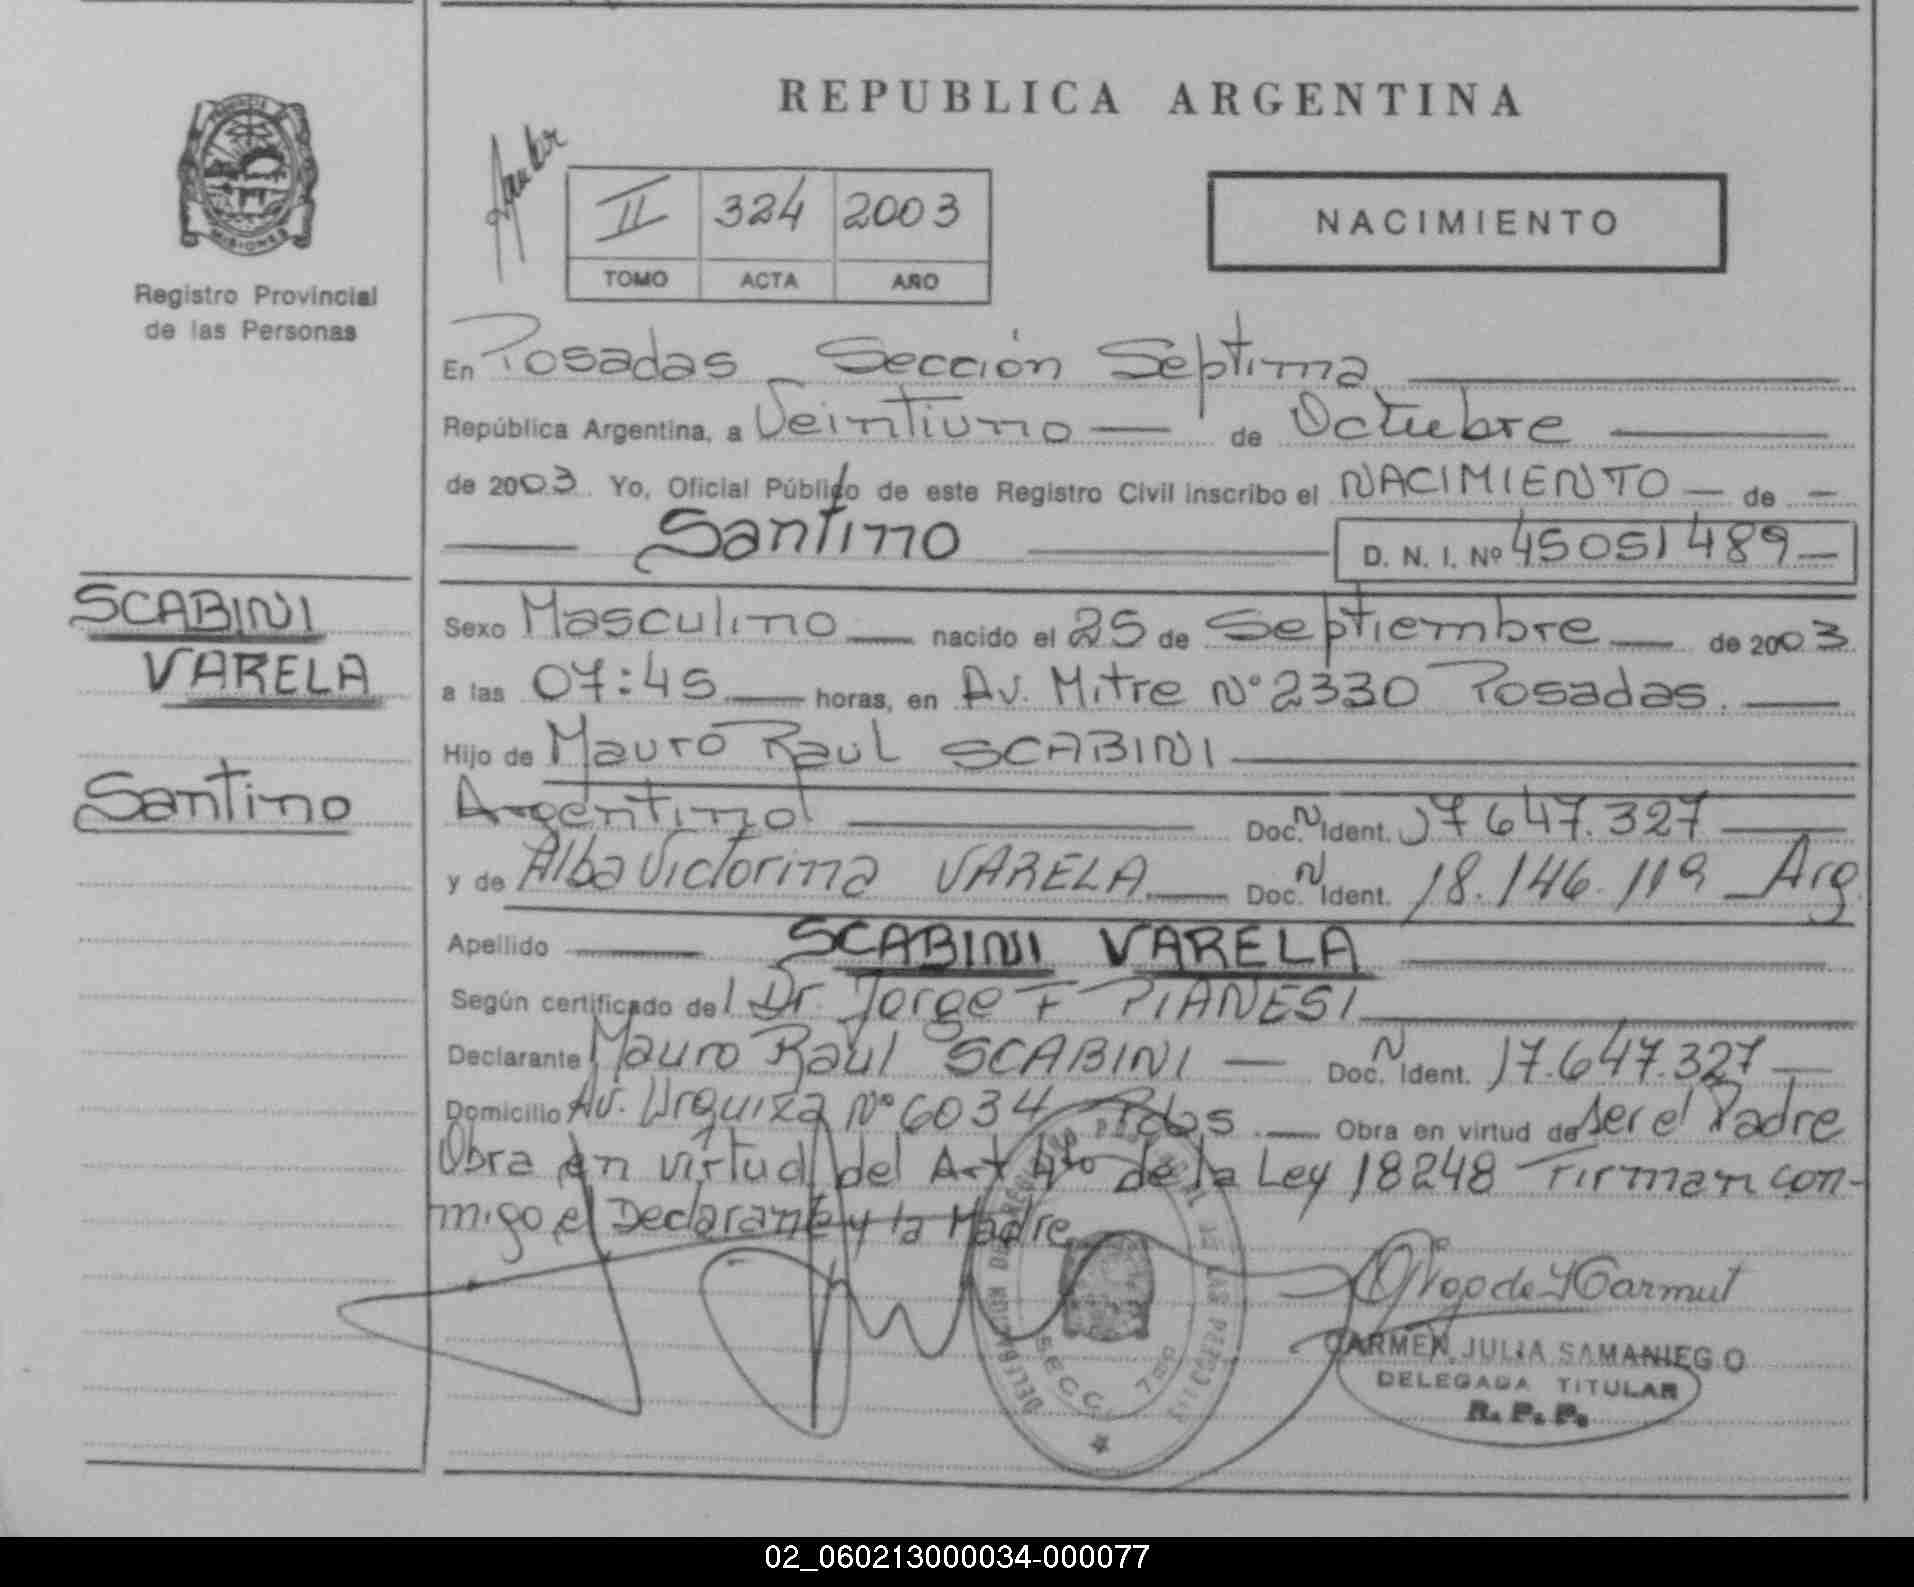 REPUBLICA ARGENTINA
II 324 2003
TOMO ACTA AÑO
NACIMIENTO
MISIONES
Registro Provincial
de las Personas
En Posadas Sección Septima
República Argentina, a Veintiuno — de Octubre
de 2003. Yo, Oficial Público de este Registro Civil inscribo el NACIMIENTO — de —
Santino
D. N. I. Nº 45051489 —
SCABINI
VARELA
Santino
Sexo Masculino — nacido el 25 de Septiembre — de 2003
a las 07:45 — horas, en Av. Mitre Nº 2330 Posadas. —
Hijo de Mauro Raul SCABINI
Argentino — Doc. N Ident. 17647.327 —
y de Alba Victorina VARELA — Doc. N Ident. 18.146.119 — Arg.
Apellido — SCABINI VARELA —
Según certificado del Dr. Jorge F PIANESI —
Declarante Mauro Raúl SCABINI — Doc. N Ident. 17.647.327 —
Domicilio Av. Urquiza Nº 6034 Pdas. — Obra en virtud de ser el Padre
Obra en virtud del Art 4to de la Ley 18248 Firman con-
migo el Declarante y la Madre
SECC. 7
CARMEN JULIA SAMANIEGO
DELEGADA TITULAR
R. P. P.
02_060213000034-000077